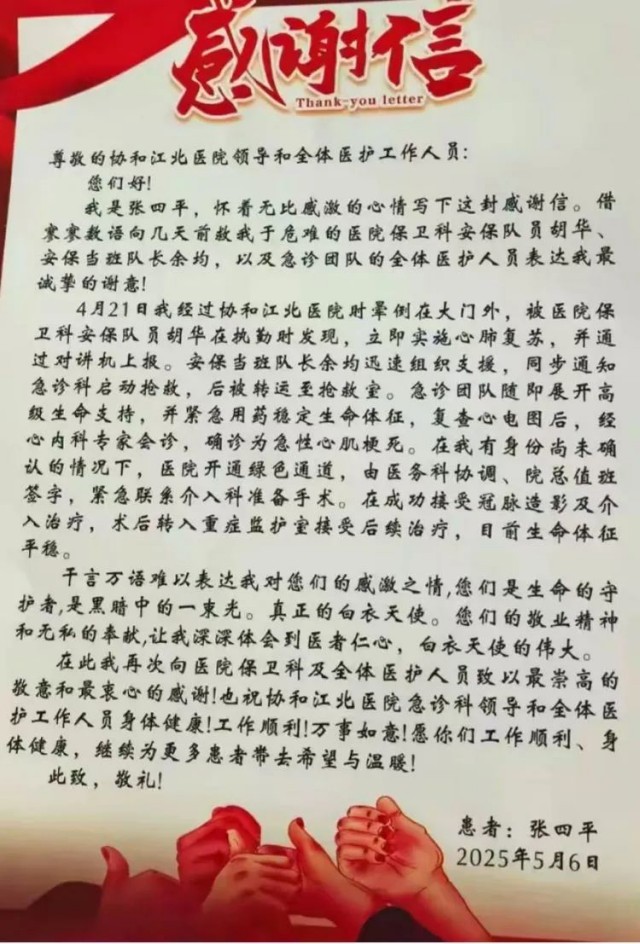 感谢信
Thank-you letter
尊敬的协和江北医院领导和全体医护工作人员:
您们好!
我是张四平，怀着无比感激的心情写下这封感谢信。借
寥寥数语向几天前救我于危难的医院保卫科安保队员胡华、
安保当班队长余均，以及急诊团队的全体医护人员表达我最
诚挚的谢意!
4月21日我经过协和江北医院时晕倒在大门外，被医院保
卫科安保队员胡华在执勤时发现，立即实施心肺复苏，并通
过对讲机上报。安保当班队长余均迅速组织支援，同步通知
急诊科启动抢救，后被转运至抢救室。急诊团队随即展开高
级生命支持，并紧急用药稳定生命体征，复查心电图后，经
心内科专家会诊，确诊为急性心肌梗死。在我有身份尚未确
认的情况下，医院开通绿色通道，由医务科协调、院总值班
签字，紧急联系介入科准备手术。在成功接受冠脉造影及介
入治疗，术后转入重症监护室接受后续治疗，目前生命体征
平稳。
千言万语难以表达我对您们的感激之情,您们是生命的守
护者,是黑暗中的一束光。真正的白衣天使。您们的敬业精神
和无私的奉献,让我深深体会到医者仁心，白衣天使的伟大。
在此我再次向医院保卫科及全体医护人员致以最崇高的
敬意和最衷心的感谢!也祝协和江北医院急诊科领导和全体医
护工作人员身体健康!工作顺利!万事如意!愿你们工作顺利、身
体健康，继续为更多患者带去希望与温暖!
此致，敬礼!
患者：张四平
2025年5月6日